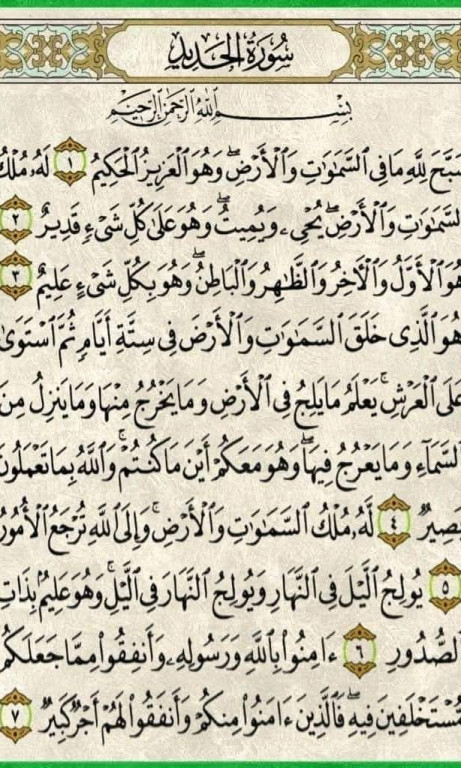 سُورَةُ الحَدِيدِ
بِسْمِ اللَّهِ الرَّحْمَٰنِ الرَّحِيمِ
سَبَّحَ لِلَّهِ مَا فِي السَّمَٰوَٰتِ وَالْأَرْضِ ۖ وَهُوَ الْعَزِيزُ الْحَكِيمُ ١ لَهُ مُلْكُ
السَّمَٰوَٰتِ وَالْأَرْضِ ۖ يُحْيِۦ وَيُمِيتُ ۖ وَهُوَ عَلَىٰ كُلِّ شَىْءٍ قَدِيرٌ ٢
هُوَ الْأَوَّلُ وَالْأَخِرُ وَالظَّٰهِرُ وَالْبَاطِنُ ۖ وَهُوَ بِكُلِّ شَىْءٍ عَلِيمٌ ٣
هُوَ الَّذِى خَلَقَ السَّمَٰوَٰتِ وَالْأَرْضَ فِى سِتَّةِ أَيَّامٍ ثُمَّ اسْتَوَىٰ
عَلَى الْعَرْشِ ۚ يَعْلَمُ مَا يَلِجُ فِى الْأَرْضِ وَمَا يَخْرُجُ مِنْهَا وَمَا يَنزِلُ مِنَ
السَّمَآءِ وَمَا يَعْرُجُ فِيهَا ۖ وَهُوَ مَعَكُمْ أَيْنَ مَا كُنتُمْ ۚ وَاللَّهُ بِمَا تَعْمَلُونَ
بَصِيرٌ ٤ لَّهُۥ مُلْكُ السَّمَٰوَٰتِ وَالْأَرْضِ ۚ وَإِلَى اللَّهِ تُرْجَعُ الْأُمُورُ
٥ يُولِجُ الَّيْلَ فِى النَّهَارِ وَيُولِجُ النَّهَارَ فِى الَّيْلِ ۚ وَهُوَ عَلِيمٌۢ بِذَاتِ
الصُّدُورِ ٦ ءَامِنُوا۟ بِاللَّهِ وَرَسُولِهِۦ وَأَنفِقُوا۟ مِمَّا جَعَلَكُم
مُّسْتَخْلَفِينَ فِيهِ ۖ فَالَّذِينَ ءَامَنُوا۟ مِنكُمْ وَأَنفَقُوا۟ لَهُمْ أَجْرٌ كَبِيرٌ ٧